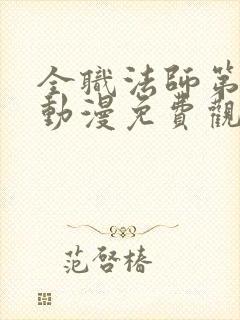 全職法師第
動漫免費觀
范啓椿